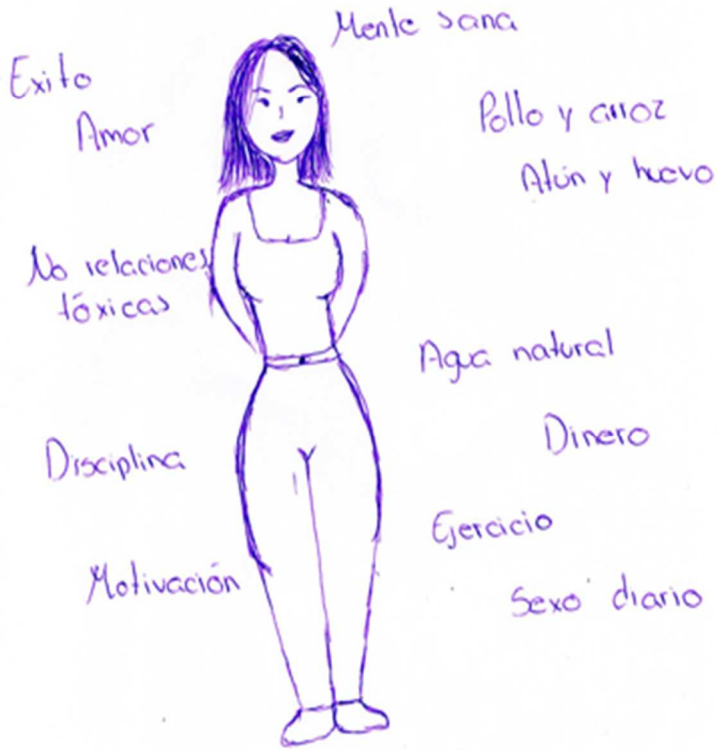 Mente sana
Exito
Amor
Pollo y arroz
Atún y huevo
No relaciones
tóxicas
Agua natural
Dinero
Disciplina
Ejercicio
Motivación
Sexo diario